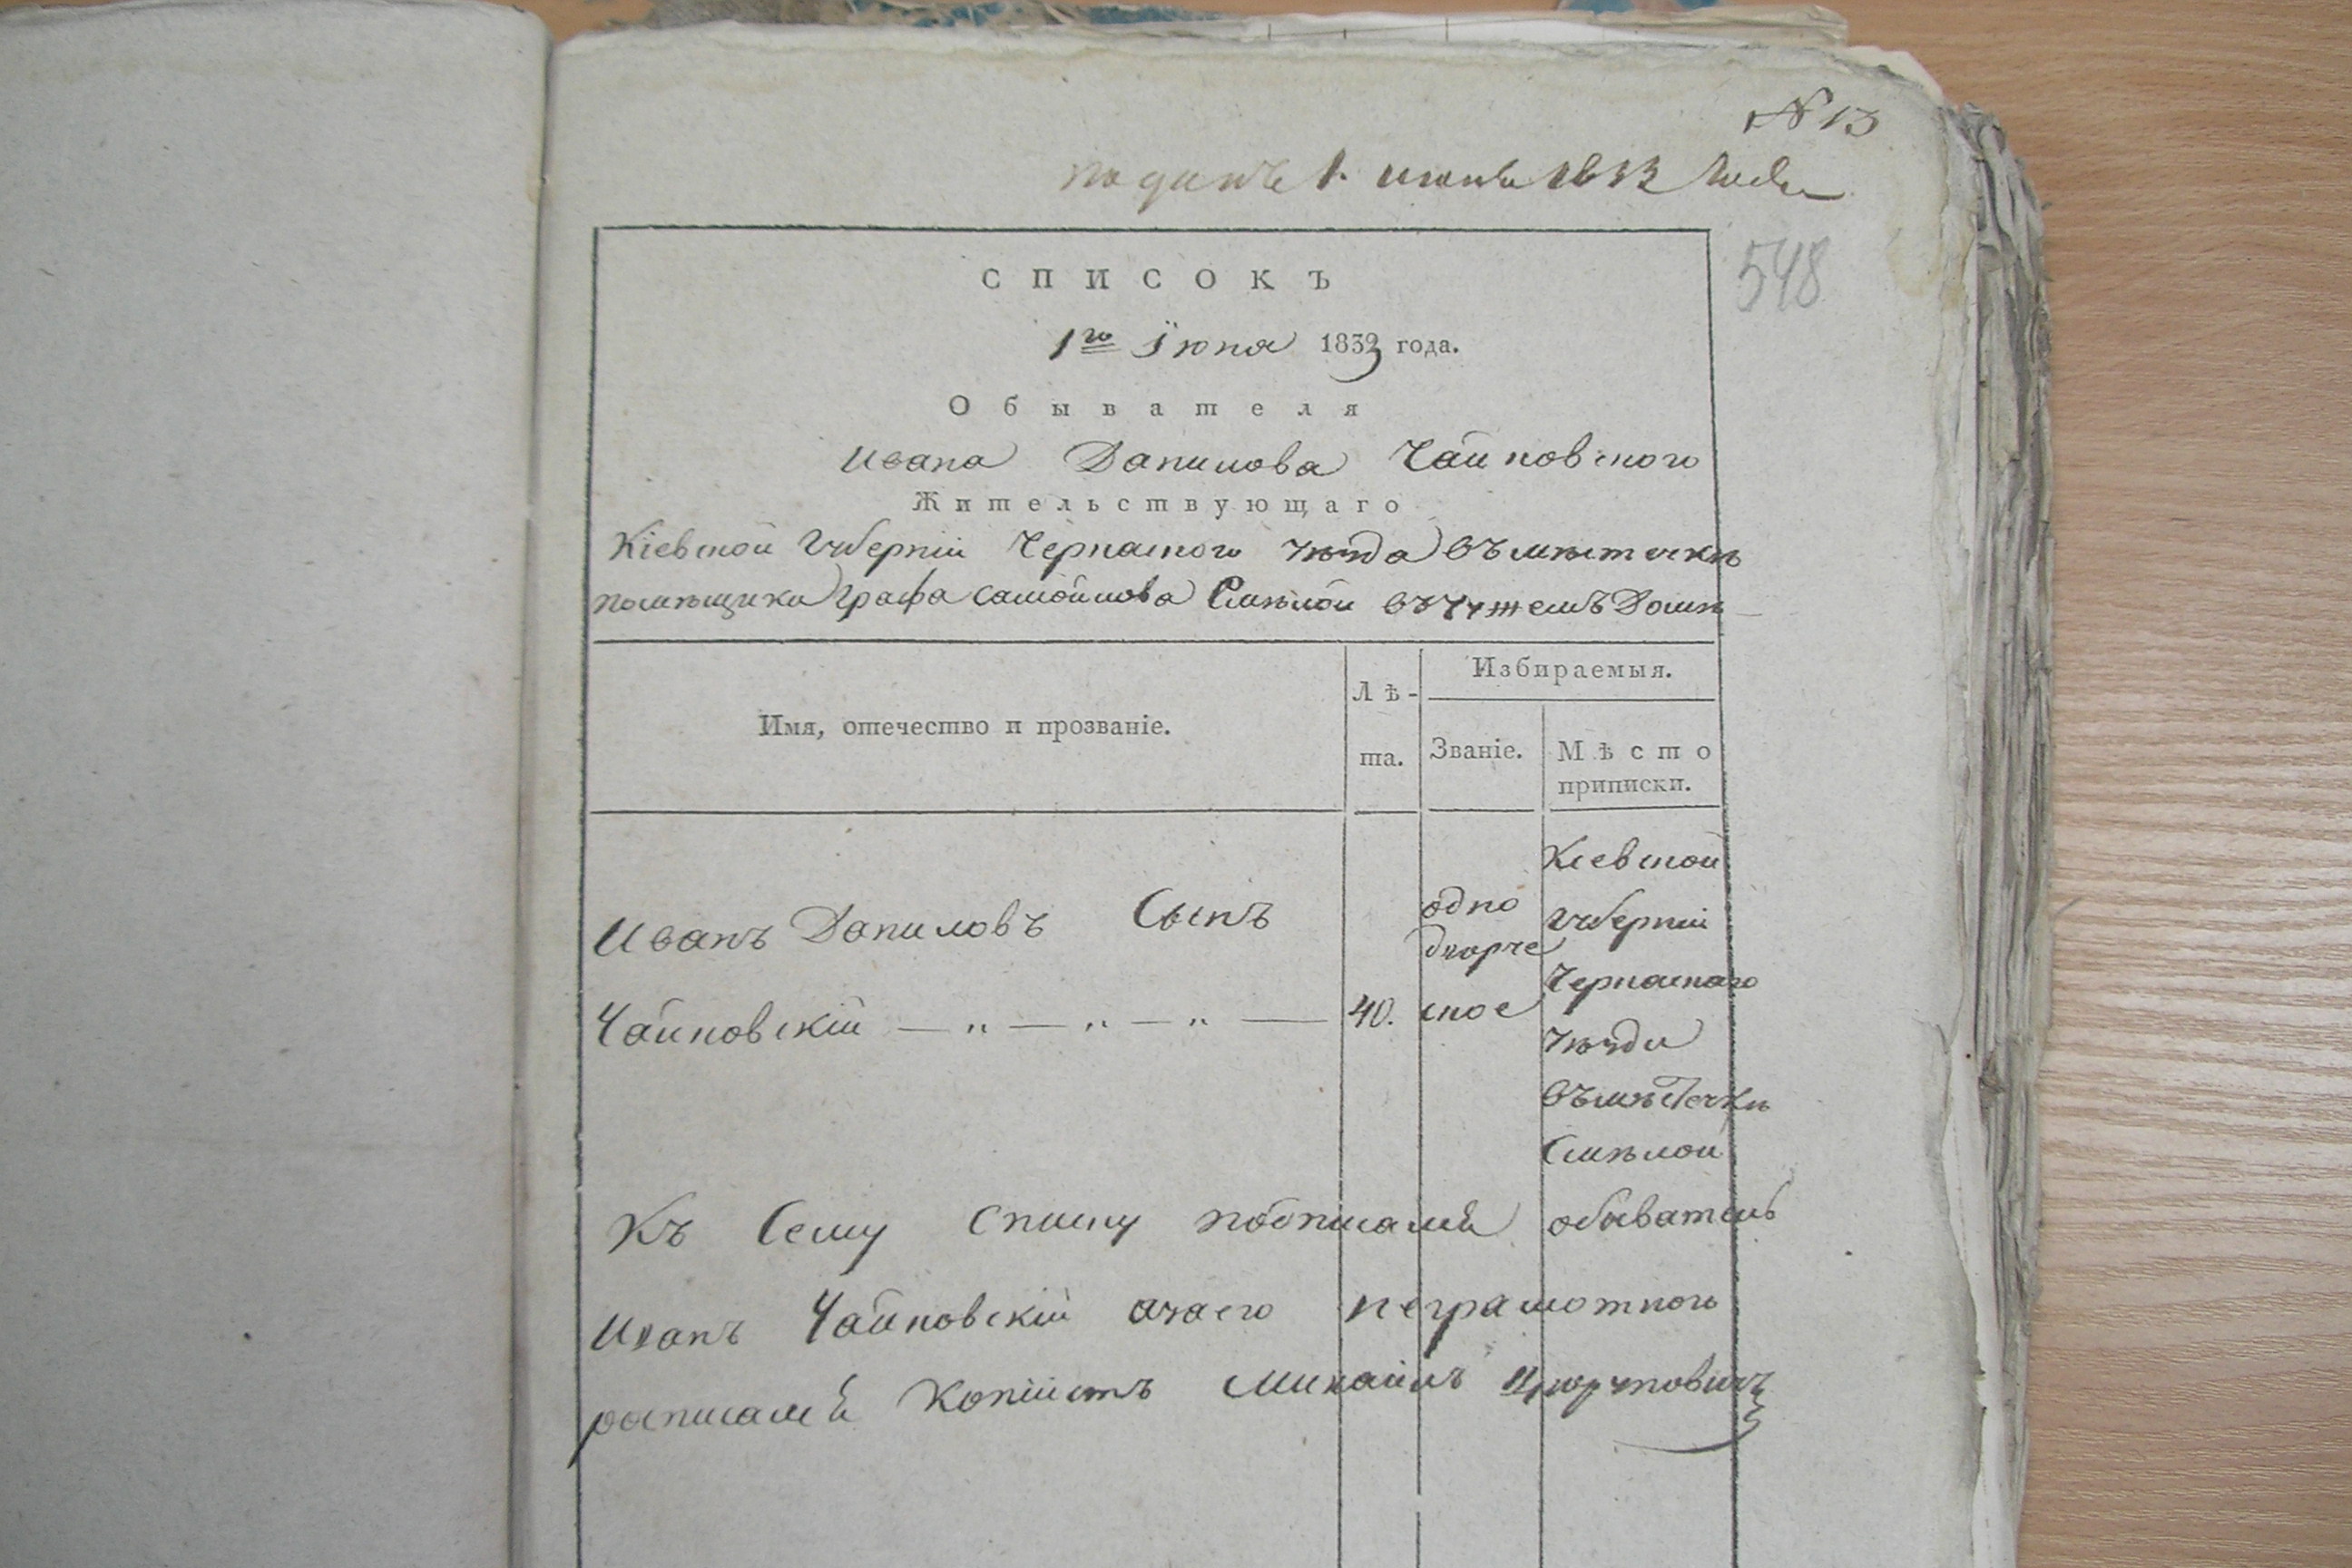 N 13
поданъ 1. июня 1833 года
548
СПИСОКЪ
1го Їюня 1833 года.
Обывателя
Ивана Данилова Чайковского
Жительствующаго
Кіевской Губерніи Черкаского уѣзда въ мѣстечкѣ
помѣщика Графа Самойлова Смѣлой въ чужемъ Домѣ
Имя, отечество и прозваніе.
Лѣ-
та.
Избираемыя.
Званіе.
Мѣсто
приписки.
Иванъ Даниловъ Сынъ
Чайковскій — „ — „ — „ —
40.
одно
дворче
ское
Кіевской
Губерніи
Черкаскаго
уѣзда
въ мѣстечкѣ
Смѣлой
Къ Сему Списку подписался обыватель
Иванъ Чайковскій азаего неграмотного
росписался Копіистъ Михаилъ